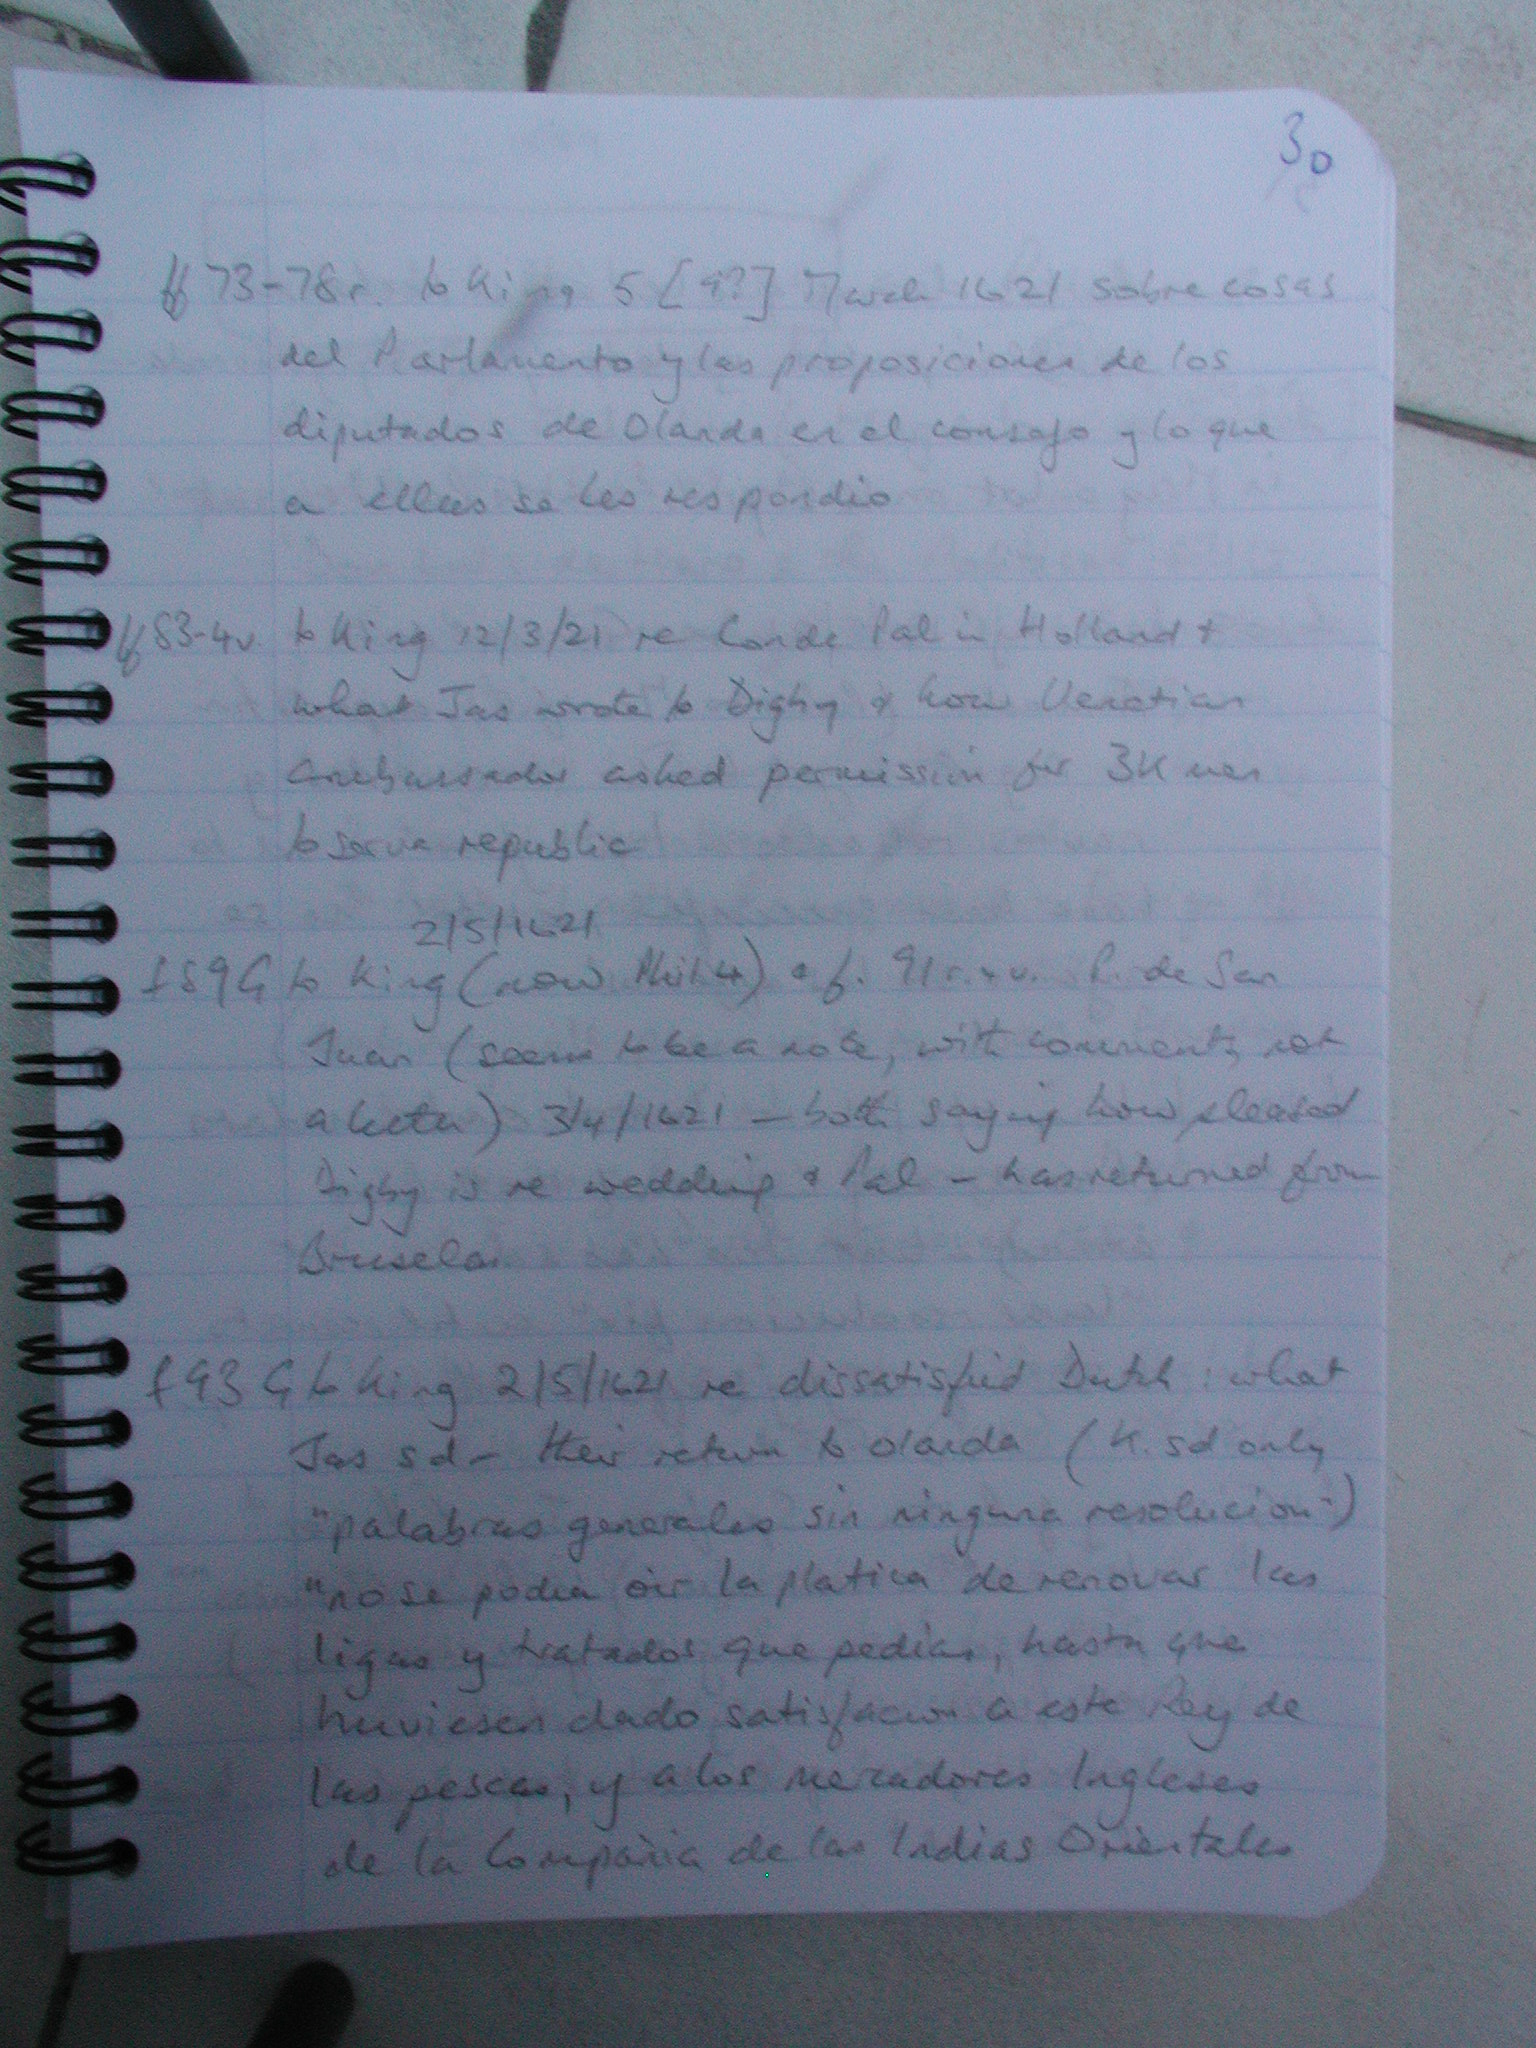 30
ff 73-78r. to King 5 [9?] March 1621 sobre cosas
del Parlamento y las proposiciones de los
diputados de Olanda en el consejo y lo que
a ellas se les respondio
ff 83-4v. to King 12/3/21 re Conde Pal in Holland &
what Jas wrote to Digby & how Venetian
ambassador asked permission for 3K men
to serve republic
2/5/1621
f 89 G to King (now Phil 4) & f. 91r.+v. P. de San
Juan (seems to be a note, with comments, not
a letter) 3/4/1621 — both saying how pleased
Digby is re wedding & Pal — has returned from
Bruselas
f 93 G to King 2/5/1621 re dissatisfied Dutch: what
Jas sd - their return to olanda (K. sd only
"palabras generales sin ninguna resolucion")
"no se podia oir la platica de renovar las
ligas y tratados que pedian, hasta que
huviesen dado satisfacion a este Rey de
las pescas, y a los mercadores Ingleses
de la Compañia de las Indias Orientales